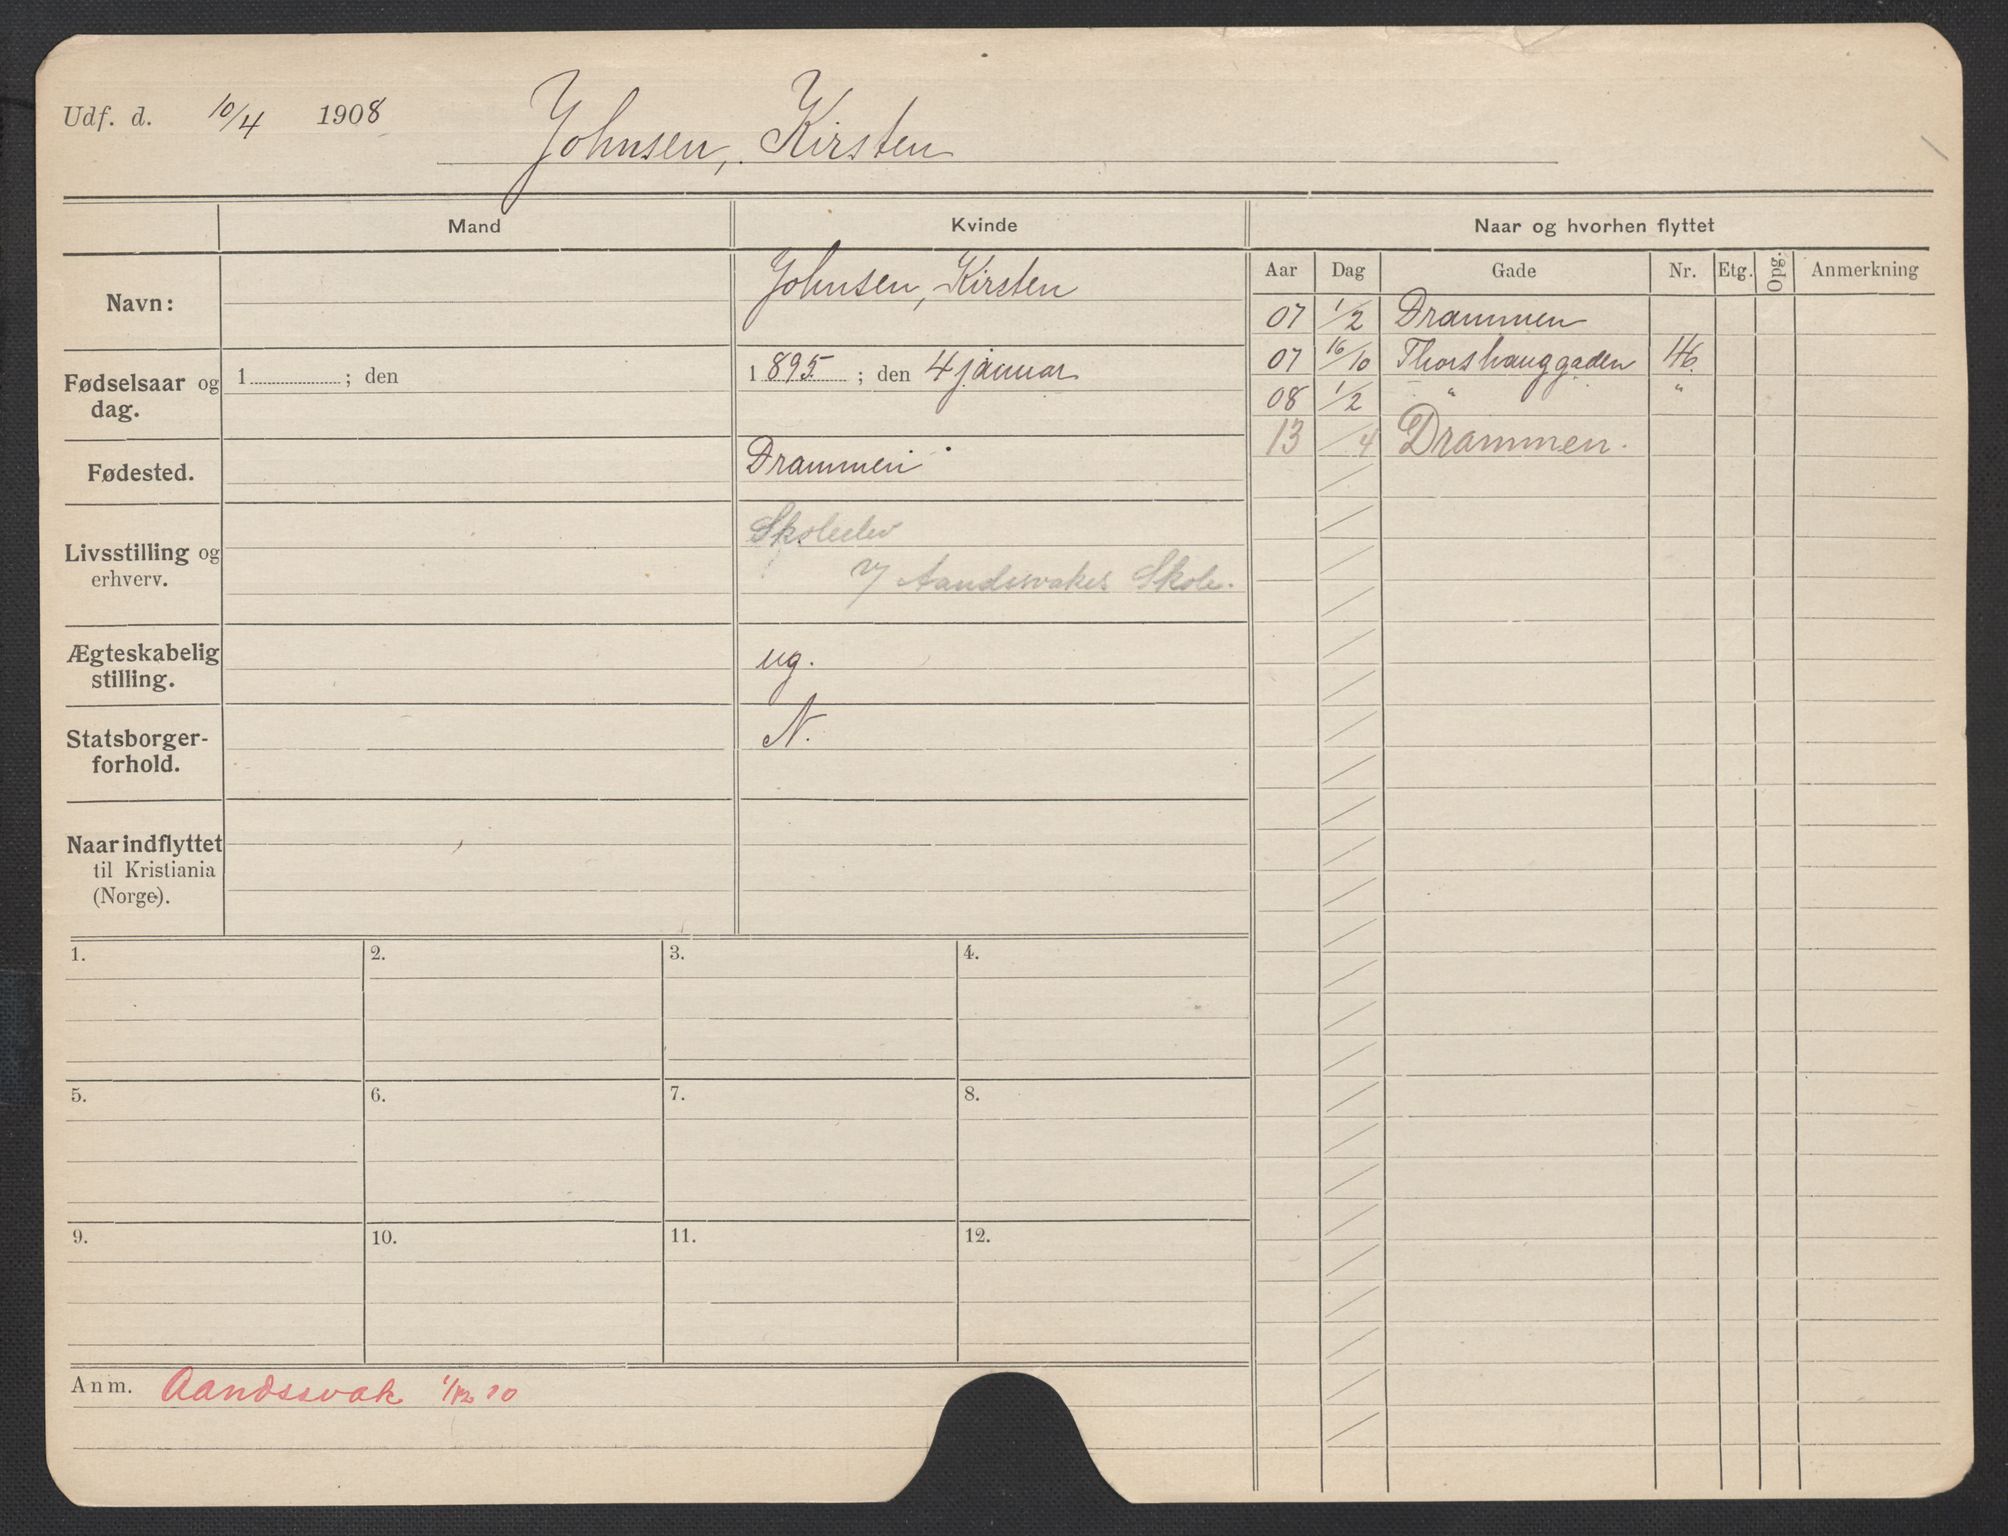 Udf. d. 10/4 1908
Johnsen, Kirsten
Mand Kvinde Naar og hvorhen flyttet
Aar Dag Gade Nr. Etg. Opg. Anmerkning
Navn: Johnsen, Kirsten
07 1/2 Drammen
07 16/10 Thorshauggaden 46.
08 1/2 " "
13 /4 Drammen.
Fødselsaar og 1 ; den 1 895 ; den 4 januar
dag.
Fødested. Drammen
Livsstilling og Skoleelev
erhverv. v/ Aandsvakes Skole.
Ægteskabelig ug.
stilling.
Statsborger- N.
forhold.
Naar indflyttet
til Kristiania
(Norge).
1. 2. 3. 4.
5. 6. 7. 8.
9. 10. 11. 12.
Anm. Aandssvak 1/12 10